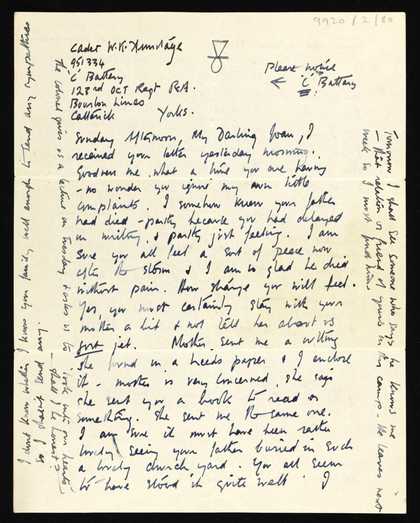 9920/2/80
Cadet W.K.
951334
'C' Battery
123rd OCT Regt R.A.
Bourlon Lines
Catterick
Yorks.
Please notice
← 'C' Battery
Sunday Afternoon, My Darling Joan, I
received your letter yesterday morning.
Goodness me, what a time you are having
- no wonder you ignore my own little
complaints. I somehow knew your father
had died - partly because you had delayed
in writing, & partly just feeling. I am
sure you all feel a sort of peace now
after the storm & I am so glad he died
without pain. How strange you will feel.
Yes, you must certainly stay with your
mother a bit & not tell her about us
just yet. Mother sent me a cutting
she found in a Leeds paper & I enclose
it - mother is very concerned, she says
she sent you a book to read or
something. She sent me the same one.
I am sure it must have been rather
lovely seeing your father buried in such
a lovely church yard. You all seem
to have stood it quite well. I
I don't know whether I know your family well enough to send any sympathies
The Colonel gives us a lecture on Tuesday & asks us to look into our hearts
Tomorrow I shall see someone who says he knows me
& that a relation is friend of yours in this camp. He leaves next
week so I must find him.